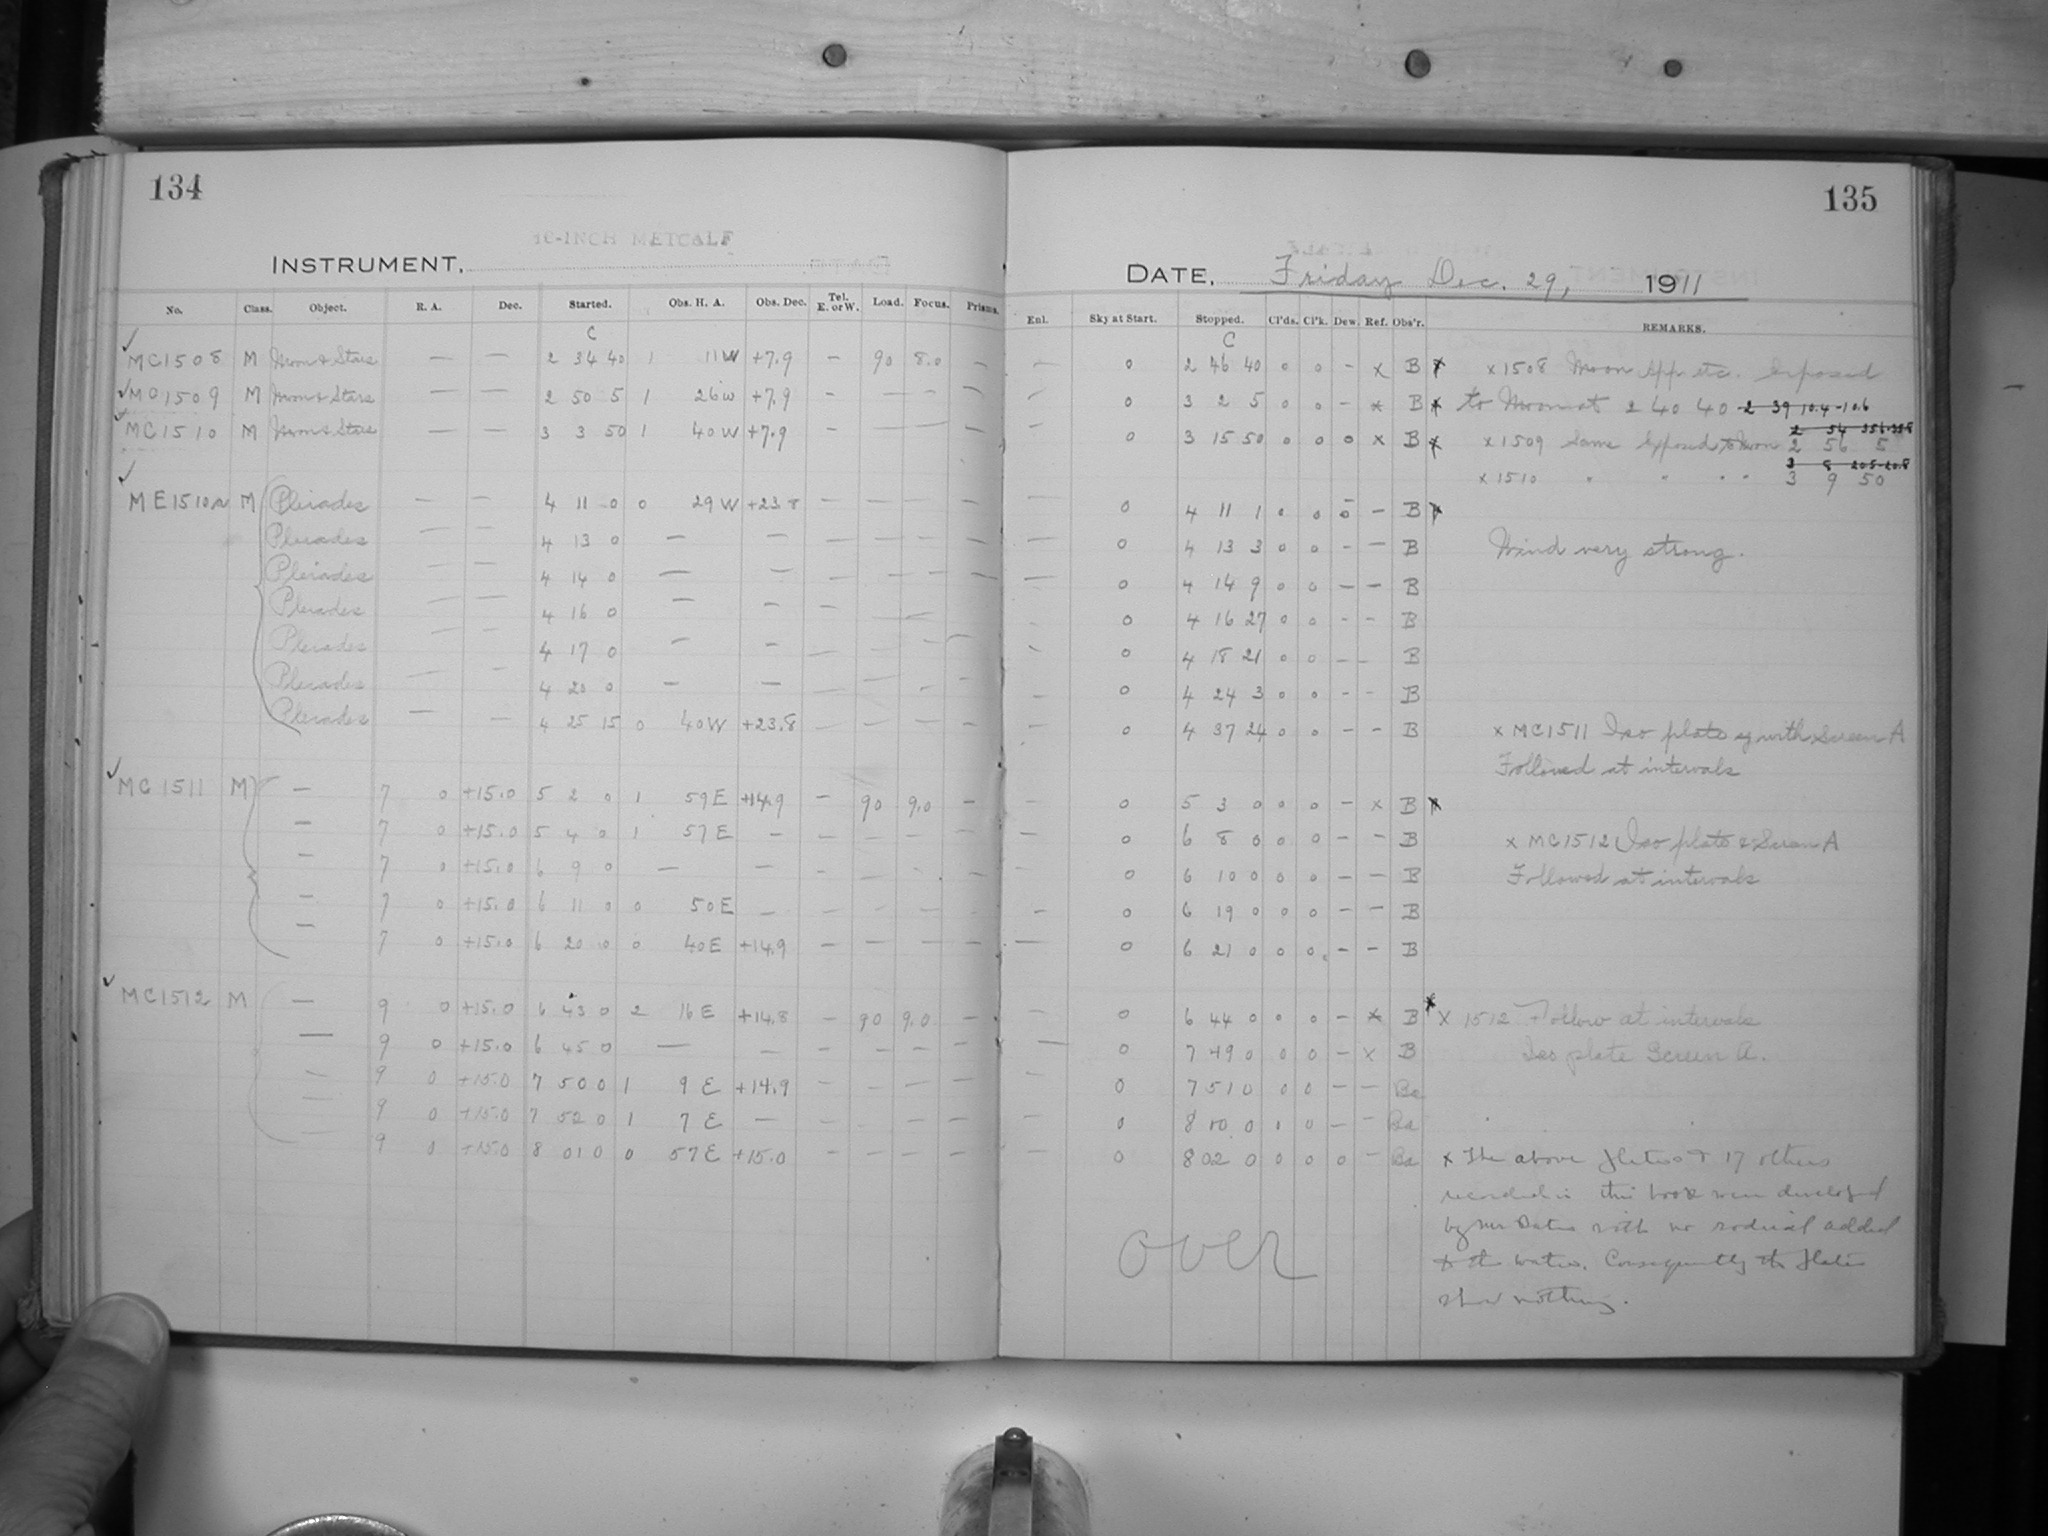 134
16-INCH METCALF
INSTRUMENT.
No. Class. Object. R. A. Dec. Started. Obs. H. A. Obs. Dec. Tel. E. or W. Load. Focus. Prisms.
C
✓
MC1508 M Moon & Stars — — 2 34 40 1 11W +7.9 – 90 8.0 —
✓MC1509 M Moon & Stars — — 2 50 5 1 26W +7.9 – — — —
✓
MC1510 M Moon & Stars — — 3 3 50 1 40W +7.9 – — — —
✓
ME1510a M Pleiades — — 4 11 0 0 29W +23.8 — — — —
Pleiades — — 4 13 0 — — — — — —
Pleiades — — 4 14 0 — — — — — —
Pleiades — — 4 16 0 — — — — —
Pleiades — — 4 17 0 — — — — — —
Pleiades — — 4 20 0 — — — — — —
Pleiades — — 4 25 15 0 40W +23.8 — — — —
✓
MC1511 M — 7 0 +15.0 5 2 0 1 59E +14.9 – 90 9.0 —
— 7 0 +15.0 5 4 0 1 57E — — — — —
— 7 0 +15.0 6 9 0 — — — — — —
— 7 0 +15.0 6 11 0 0 50E — — — — —
— 7 0 +15.0 6 20 0 0 40E +14.9 — — — —
✓
MC1512 M — 9 0 +15.0 6 43 0 2 16E +14.8 – 90 9.0 —
— 9 0 +15.0 6 45 0 — — — — — —
— 9 0 +15.0 7 50 0 1 9E +14.9 — — — —
— 9 0 +15.0 7 52 0 1 7E — — — — —
— 9 0 +15.0 8 01 0 0 57E +15.0 — — — —
135
DATE. Friday Dec. 29, 1911
Enl. Sky at Start. Stopped. Cl'ds. Cl'k. Dew. Ref. Obs'r. REMARKS.
C
— 0 2 46 40 0 0 – x B x x 1508 Moon App etc. Exposed
— 0 3 2 5 0 0 – x B x to Moon at 2 40 40 2 39 10.4-10.6
— 0 3 15 50 0 0 0 x B x x 1509 Same Exposed to Moon 2 56 5
x 1510 " " " " 3 9 50
— 0 4 11 1 0 0 0 – B x
— 0 4 13 3 0 0 – – B Wind very strong.
— 0 4 14 9 0 0 – – B
0 4 16 27 0 0 – – B
— 0 4 18 21 0 0 – – B
— 0 4 24 3 0 0 – – B
— 0 4 37 24 0 0 – – B x MC1511 Iso plate with Screen A
Followed at intervals
— 0 5 3 0 0 0 – x B x
— 0 6 8 0 0 0 – – B x MC1512 Iso plate & Screen A
— 0 6 10 0 0 0 – – B Followed at intervals
— 0 6 19 0 0 0 – – B
— 0 6 21 0 0 0 – – B
— 0 6 44 0 0 0 – x B x x 1512 Follow at intervals
— 0 7 49 0 0 0 – x B Iso plate Screen A.
— 0 7 51 0 0 0 – – Ba
— 0 8 00 0 1 0 – – Ba
— 0 8 02 0 0 0 0 – Ba x The above plates & 17 others
recorded in this book were developed
by Mr Bates with no rodinal added
over to the water. Consequently the plates
show nothing.